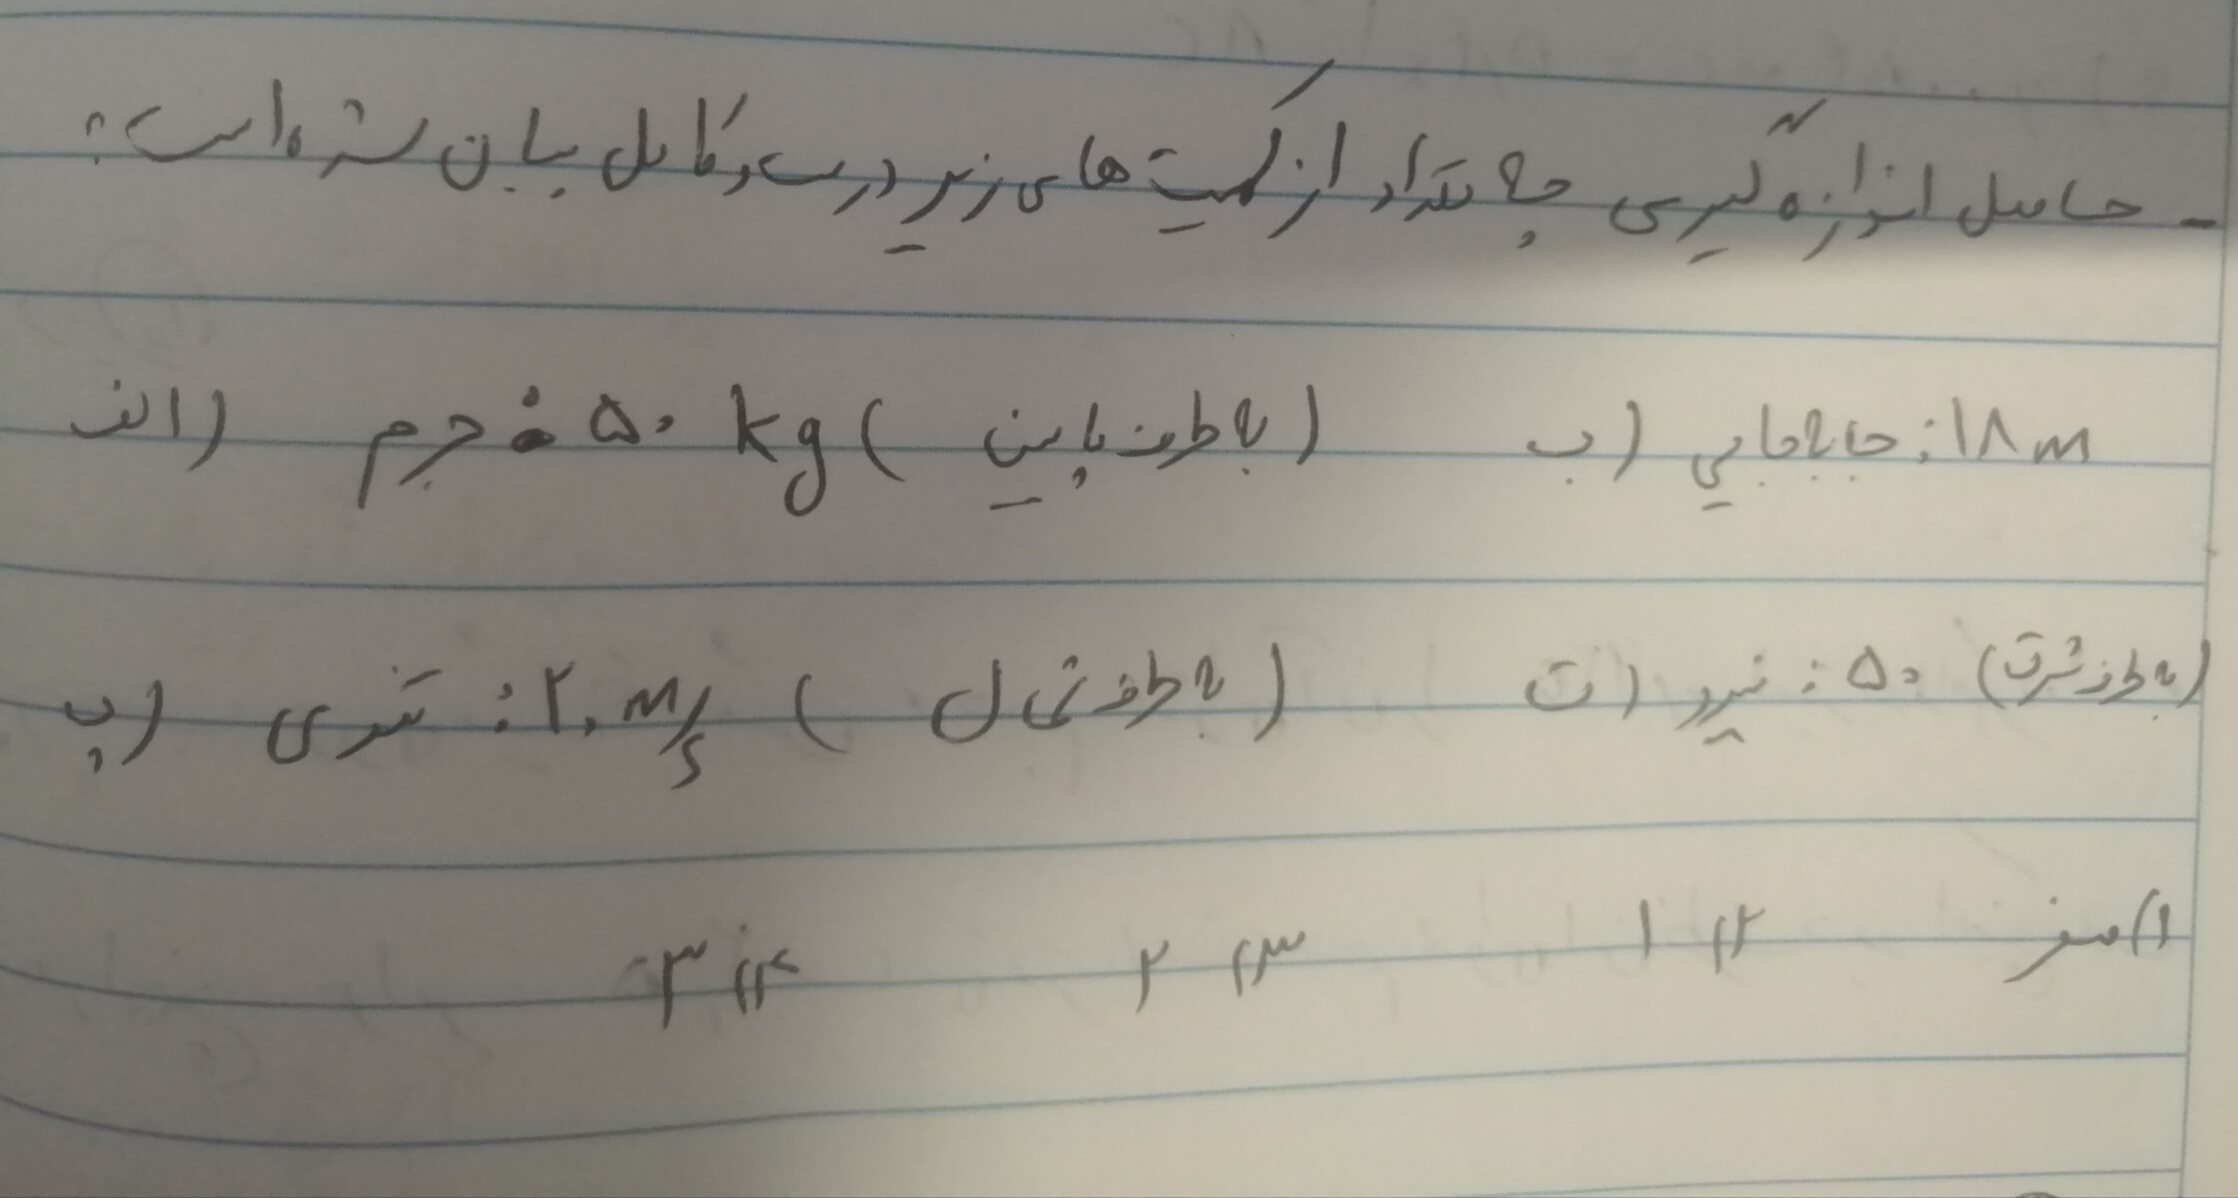 - حاصل اندازه گیری چه تعداد از کمیت های زیر درست و کامل بیان شده است؟
الف) جرم : ۵۰ kg (به طرف پایین) ب) جابه جایی : ۱۸ m
پ) تندی : ۲۰ m/s (به طرف شمال) ت) نیرو : ۵۰ (به طرف شرق)
۱) صفر ۲) ۱ ۳) ۲ ۴) ۳